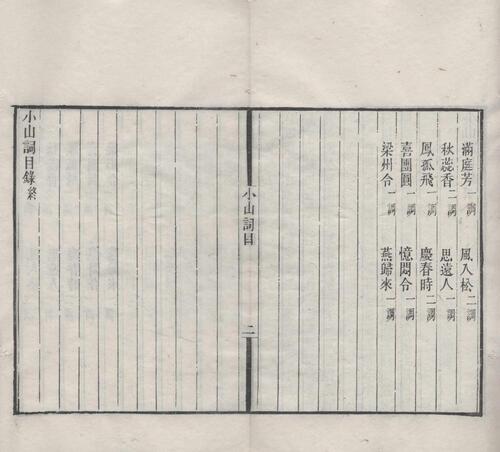 滿庭芳一調 風入松二調
秋蕊香二調 思遠人一調
鳳孤飛一調 慶春時二調
喜團圓一調 憶悶令一調
梁州令一調 燕歸來一調
小山詞目 二
小山詞目錄終